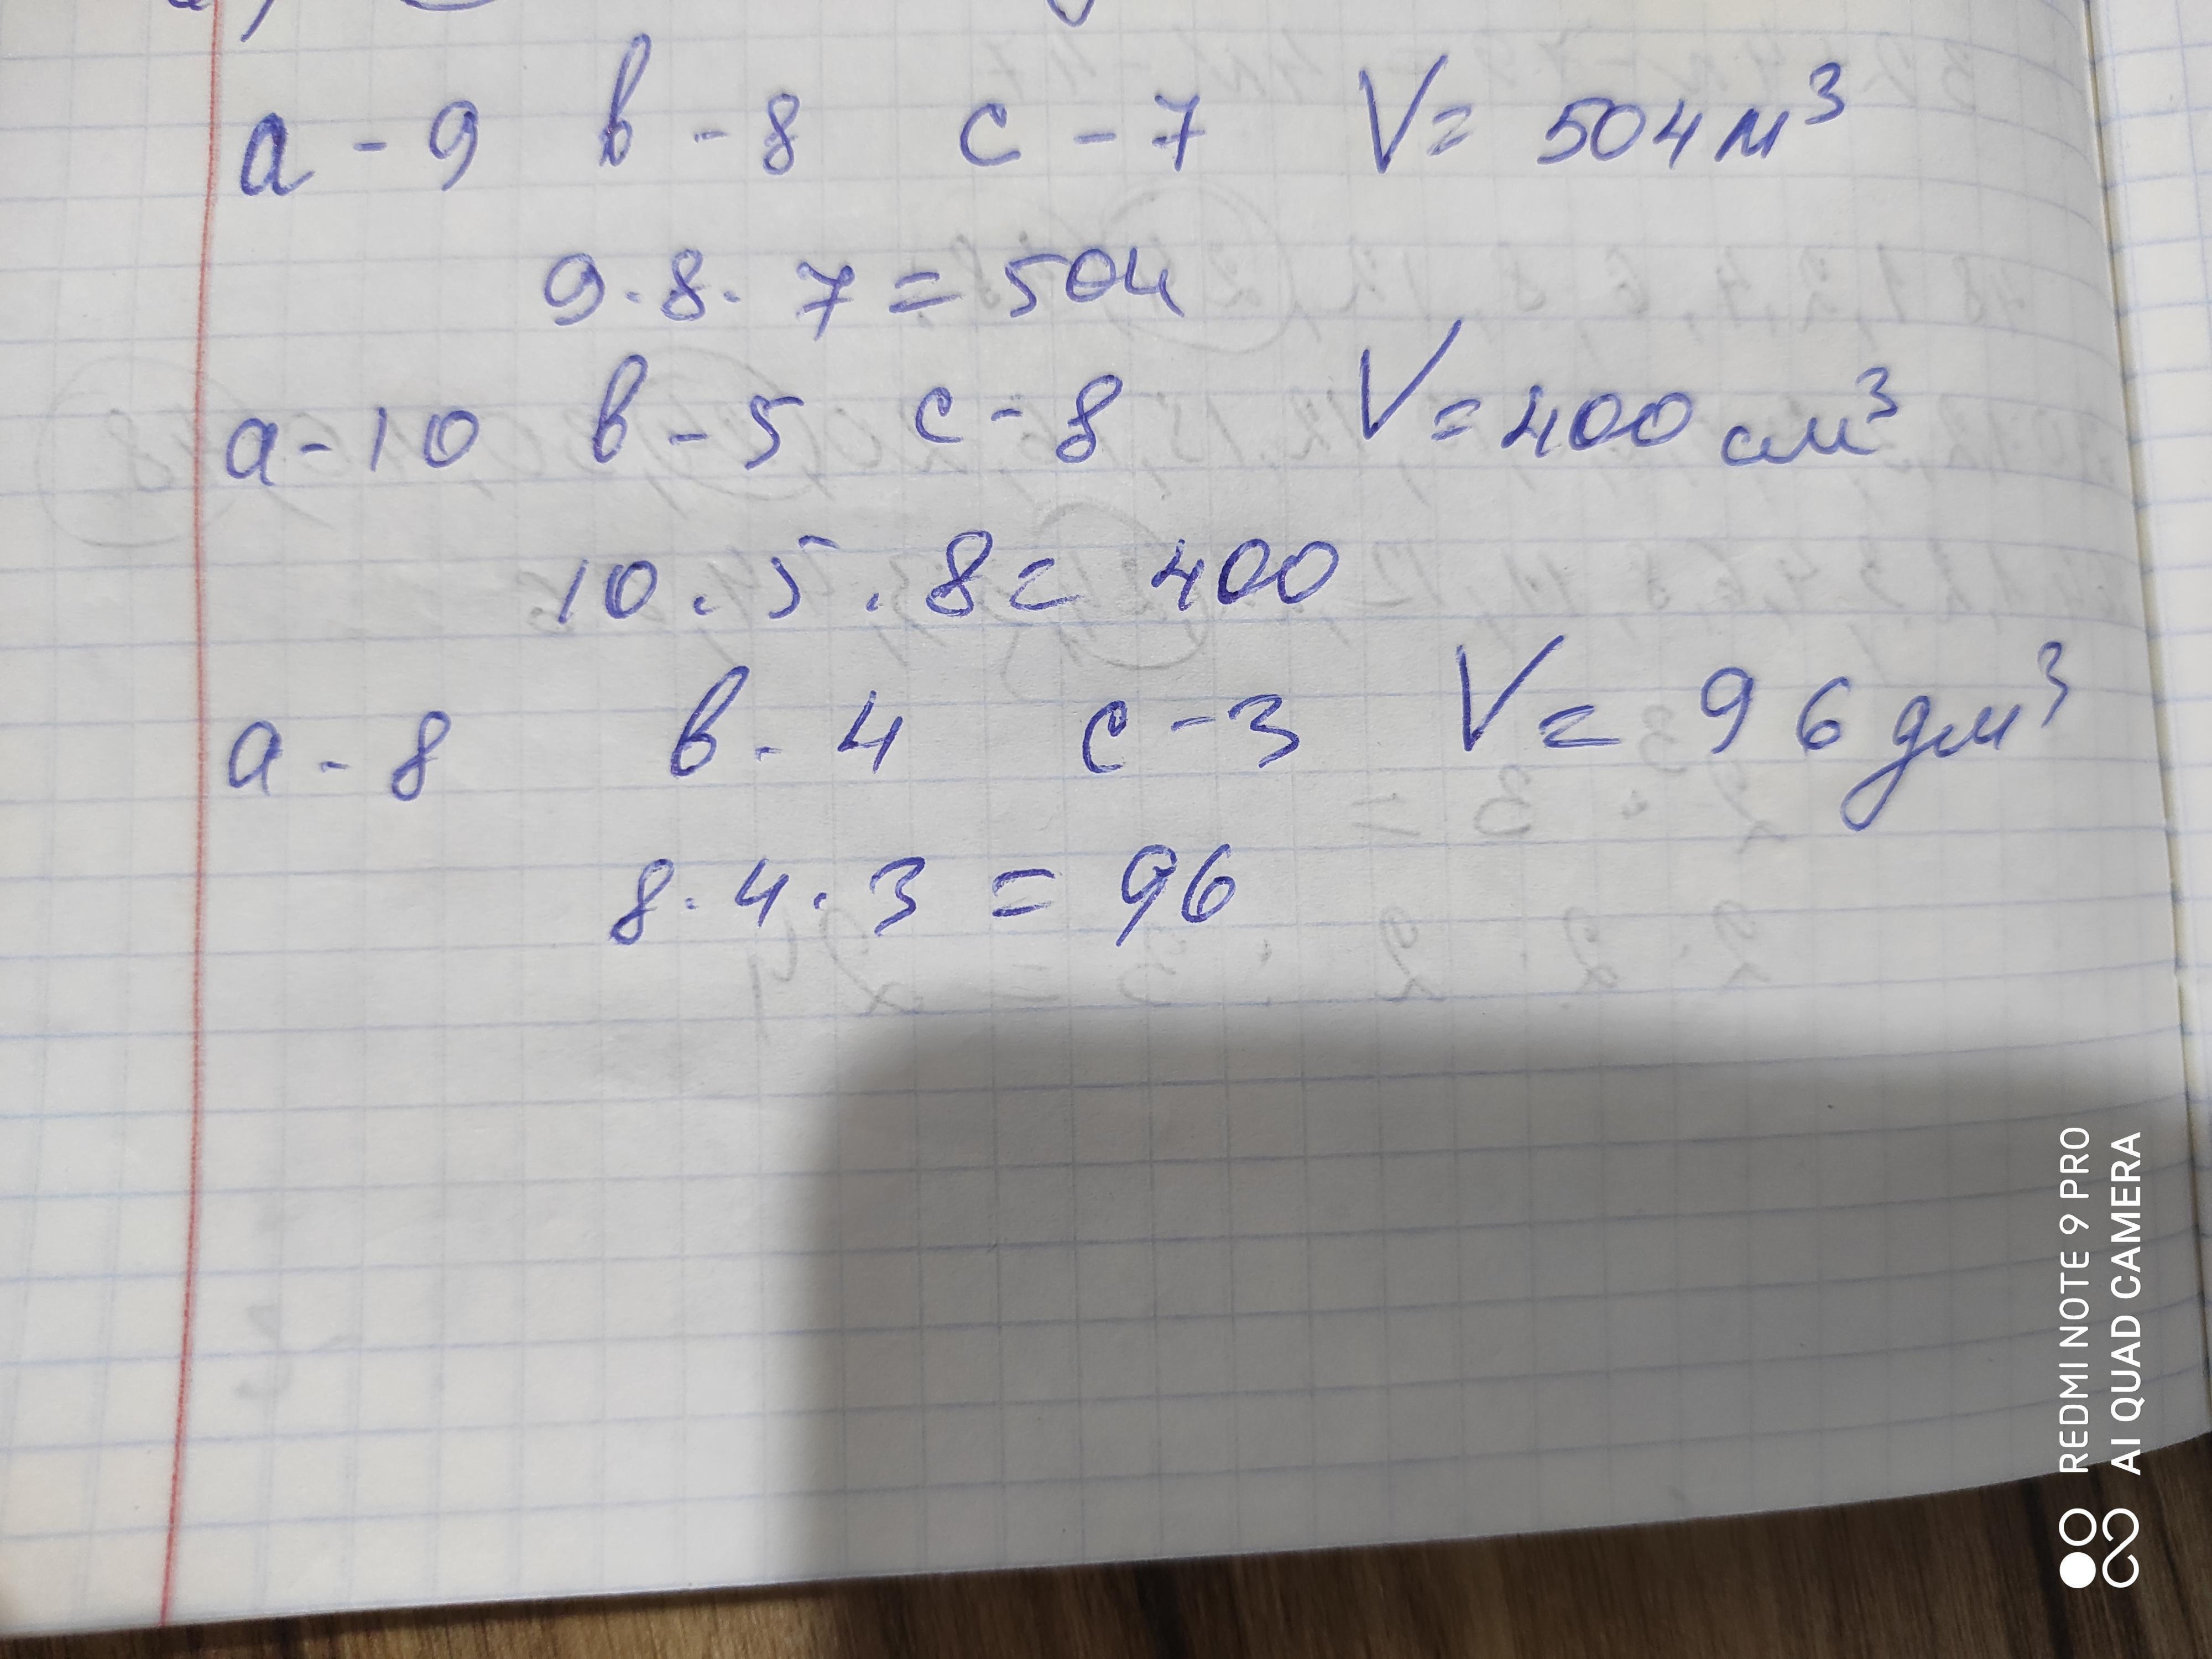 a - 9 в - 8 c - 7 V = 504 м³
9 · 8 · 7 = 504
a - 10 в - 5 c - 8 V = 400 см³
10 . 5 . 8 = 400
a - 8 в - 4 c - 3 V = 96 дм³
8 · 4 · 3 = 96
REDMI NOTE 9 PRO
AI QUAD CAMERA